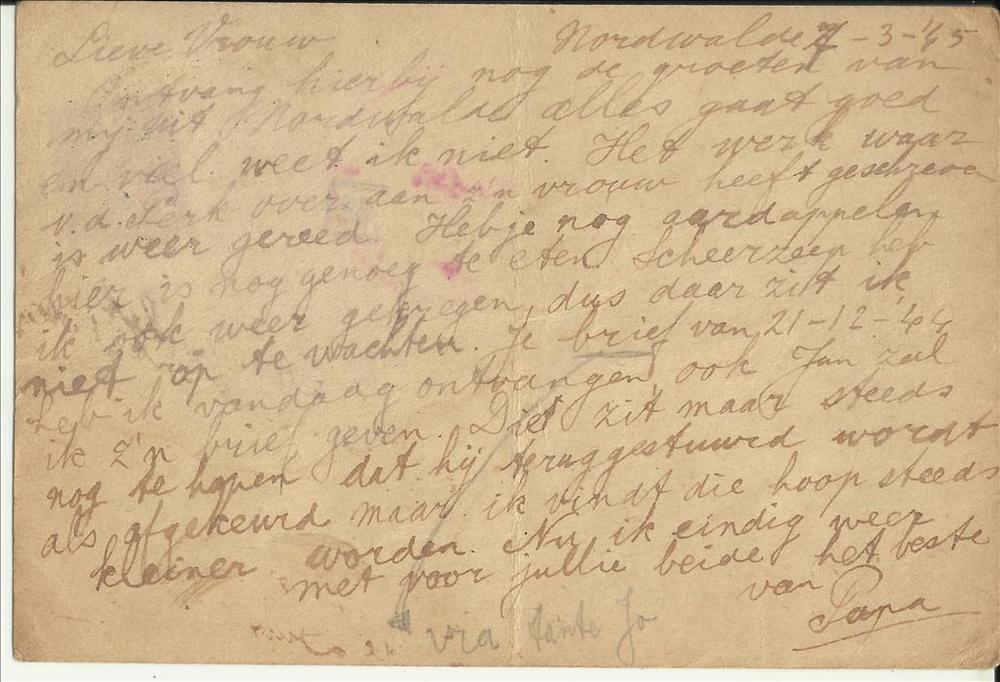 Lieve Vrouw Nordwalde 7-3-'45
Ontvang hierbij nog de groeten van
mij uit Nordwalde alles gaat goed
en veel weet ik niet. Het werk waar
v.d. Perk over aan z'n vrouw heeft geschreven
is weer gereed. Heb je nog aardappelen
hier is nog genoeg te eten. Scheerzeep heb
ik ook weer gekregen, dus daar zit ik
niet op te wachten. Je brief van 21-12-'44
heb ik vandaag ontvangen, ook Jan zal
ik z'n brief geven. Die zit maar steeds
nog te hopen dat hij teruggestuurd wordt
als afgekeurd maar ik vindt die hoop steeds
kleiner worden. Nu ik eindig weer
met voor jullie beide het beste
van
Papa
via tante Jo